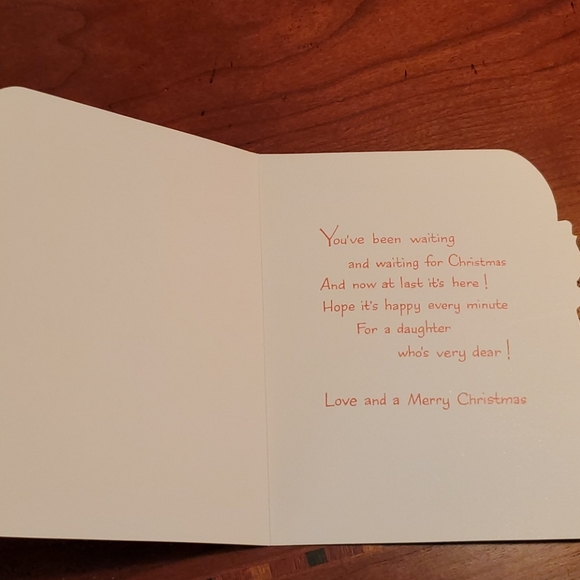 You've been waiting
and waiting for Christmas
And now at last it's here!
Hope it's happy every minute
For a daughter
who's very dear!
Love and a Merry Christmas